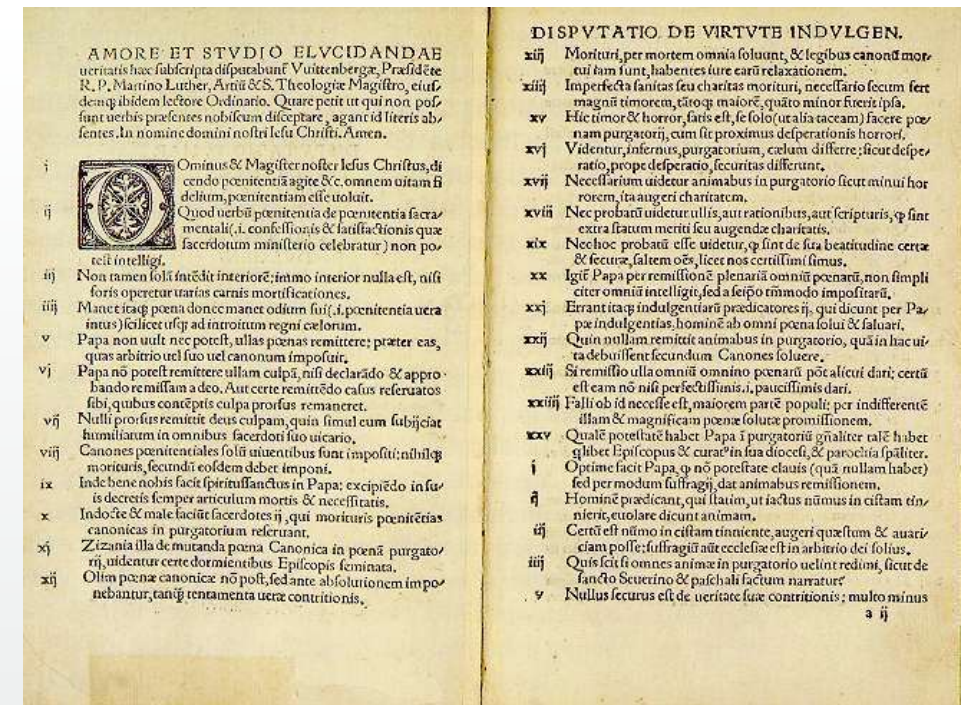 AMORE ET STVDIO ELVCIDANDAE
ueritatis hæc ſubſcripta diſputabunť Vuittenbergæ, Præſidēte
R. P. Martino Luther, Artiū & S. Theologiæ Magiſtro, eiuſ-
demq; ibidem lectore Ordinario. Quare petit ut qui non poſ-
ſunt uerbis præſentes nobiſcum diſceptare, agant id literis ab-
ſentes. In nomine domini noſtri Ieſu Chriſti. Amen.
i DOminus & Magiſter noſter Ieſus Chriſtus, di
cendo pœnitentiā agite &c. omnem uitam fi
delium, pœnitentiam eſſe uoluit.
ij Quod uerbū pœnitentia de pœnitentia ſacra-
mentali (.i. confeſſionis & ſatiſfactionis quæ
ſacerdotum miniſterio celebratur) non po-
teſt intelligi.
iij Non tamen ſolā intēdit interiorē: immo interior nulla eſt, niſi
foris operetur uarias carnis mortificationes.
iiij Manet itaq; pœna donec manet odium ſui (.i. pœnitentia uera
intus) ſcilicet uſq; ad introitum regni cælorum.
v Papa non uult nec poteſt, ullas pœnas remittere: præter eas,
quas arbitrio uel ſuo uel canonum impoſuit.
vj Papa nō poteſt remittere ullam culpā, niſi declarādo & appro-
bando remiſſam a deo. Aut certe remittēdo caſus reſeruatos
ſibi, quibus contēptis culpa prorſus remaneret.
vij Nulli prorſus remittit deus culpam, quin ſimul eum ſubijciat
humiliatum in omnibus ſacerdoti ſuo uicario.
viij Canones pœnitentiales ſolū uiuentibus ſunt impoſiti: nihilq;
morituris, ſecundū eoſdem debet imponi.
ix Inde bene nobis facit ſpirituſſanctus in Papa: excipiēdo in ſu-
is decretis ſemper articulum mortis & neceſſitatis.
x Indocte & male faciūt ſacerdotes ij, qui morituris pœnitētias
canonicas in purgatorium reſeruant.
xj Zizania illa de mutanda pœna Canonica in pœnā purgato-
rij, uidentur certe dormientibus Epiſcopis ſeminata.
xij Olim pœnæ canonicæ nō poſt, ſed ante abſolutionem impo-
nebantur, tanq; tentamenta ueræ contritionis.
DISPVTATIO DE VIRTVTE INDVLGEN.
xiij Morituri, per mortem omnia ſoluunt, & legibus canonū mor-
tui iam ſunt, habentes iure earū relaxationem.
xiiij Imperfecta ſanitas ſeu charitas morituri, neceſſario ſecum fert
magnū timorem, tātoq; maiorē, quāto minor fuerit ipſa.
xv Hic timor & horror, ſatis eſt, ſe ſolo (ut alia taceam) facere pœ-
nam purgatorij, cum ſit proximus deſperationis horrori.
xvj Videntur, infernus, purgatorium, cælum differre: ſicut deſpe-
ratio, prope deſperatio, ſecuritas differunt.
xvij Neceſſarium uidetur animabus in purgatorio ſicut minui hor
rorem, ita augeri charitatem.
xviij Nec probatū uidetur ullis, aut rationibus, aut ſcripturis, ꝙ ſint
extra ſtatum meriti ſeu augendæ charitatis.
xix Nec hoc probatū eſſe uidetur, ꝙ ſint de ſua beatitudine certæ
& ſecuræ, ſaltem oēs, licet nos certiſſimi ſimus.
xx Igiť Papa per remiſſionē plenariā omniū pœnarū, non ſimpli
citer omniū intelligit, ſed a ſeipſo tm̄modo impoſitarū.
xxj Errant itaq; indulgentiarū prædicatores ij, qui dicunt per Pa-
pæ indulgentias, hominē ab omni pœna ſolui & ſaluari.
xxij Quin nullam remittit animabus in purgatorio, quā in hac ui-
ta debuiſſent ſecundum Canones ſoluere.
xxiij Si remiſſio ulla omniū omnino pœnarū pōt alicui dari; certū
eſt eam nō niſi perfectiſſimis .i. pauciſſimis dari.
xxiiij Falli ob id neceſſe eſt, maiorem partē populi: per indifferentē
illam & magnificam pœnæ ſolutæ promiſſionem.
xxv Qualē poteſtatē habet Papa ī purgatoriū gn̄aliter talē habet
q̄libet Epiſcopus & curatꝰ in ſua dioceſi, & parochia ſpāliter.
i Optime facit Papa, ꝙ nō poteſtate clauis (quā nullam habet)
ſed per modum ſuffragij, dat animabus remiſſionem.
ij Hominē prædicant, qui ſtatim, ut iactus nūmus in ciſtam tin-
nierit, euolare dicunt animam.
iij Certū eſt nūmo in ciſtam tinniente, augeri quæſtum & auari-
ciam poſſe: ſuffragiū aūt eccleſiæ eſt in arbitrio dei ſolius.
iiij Quis ſcit ſi omnes animæ in purgatorio uelint redimi, ſicut de
ſancto Seuerino & paſchali factum narratur?
v Nullus ſecurus eſt de ueritate ſuæ contritionis; multo minus
a ij